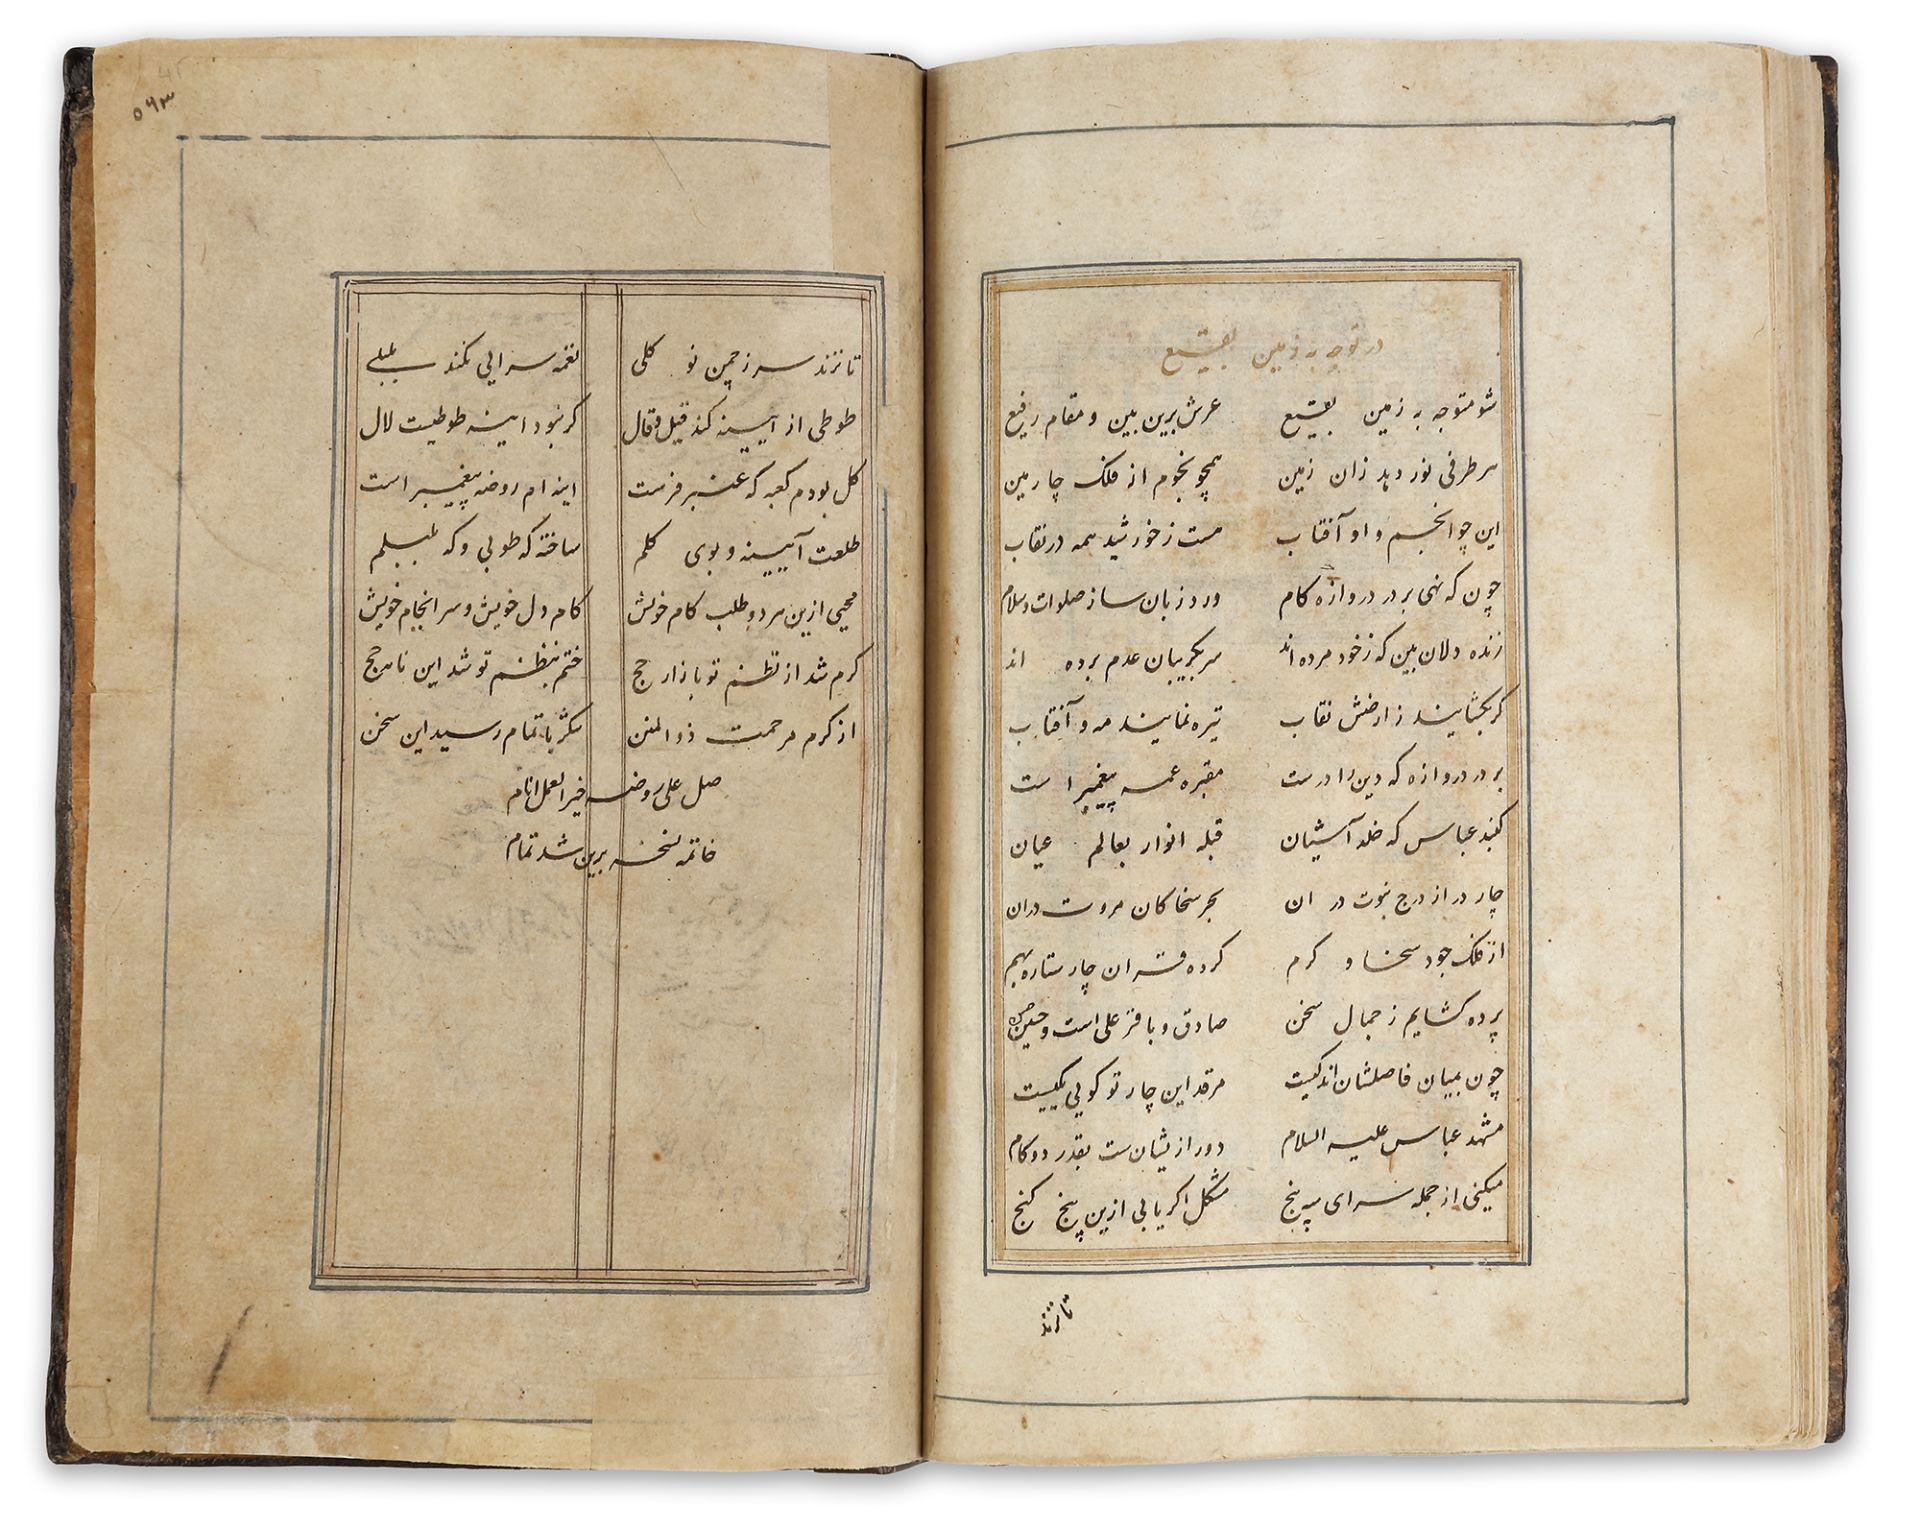 در توجه به زمین بقیع
شو متوجه به زمین بقیع عرش برین بین و مقام رفیع
هر طرفی نور دهد زان زمین همچو نجوم از فلک چارمین
این چو انجم و او آفتاب هست ز خورشید همه در نقاب
چون که نهی بر در دروازه کام ورد زبان ساز صلوات و سلام
زنده دلان بین که ز خود مرده اند سر بگریبان عدم برده اند
کر بگشایند ز ارضش نقاب تیره نمایند مه و آفتاب
بر در دروازه که دین را درست مقبره عمه پیغمبر است
کنبد عباس که خلد آشیان قبله انوار بعالم عیان
چار در از درج نبوت در ان بحر سخا کان مروت دران
از فلک جود سخا و کرم کرده قران چار ستاره بهم
پرده کشایم ز جمال سخن صادق و باقر علی است و حسن
چون بمیان فاصلشان اندکیست مرقد این چار تو کویی یکیست
مشهد عباس علیه السلام دور ازیشان ست بقدر دو کام
میکنی از جمله سرای سپنج مشکل اکر یابی ازین پنج کنج
تا نزند
۵۶۳
تا نزند سر ز چمن نو کلی نغمه سرایی نکند بلبلی
طوطی از آیینه کند قیل و قال کر نبود اینه طوطیت لال
کل بودم کعبه که عنبر فرست اینه ام روضه پیغمبر است
طلعت آیینه و بوی کلم ساخته که طوبی و که بلبلم
محیی ازین هر دو طلب کام خویش کام دل خویش و سر انجام خویش
کرم شد از نظم تو بازار حج ختم بنظم تو شد این ناهج حج
از کرم مرحمت ذو المنن شکر باتمام رسید این سخن
صل علی روضه خیر الانام
خاتمه نسخه برین شد تمام